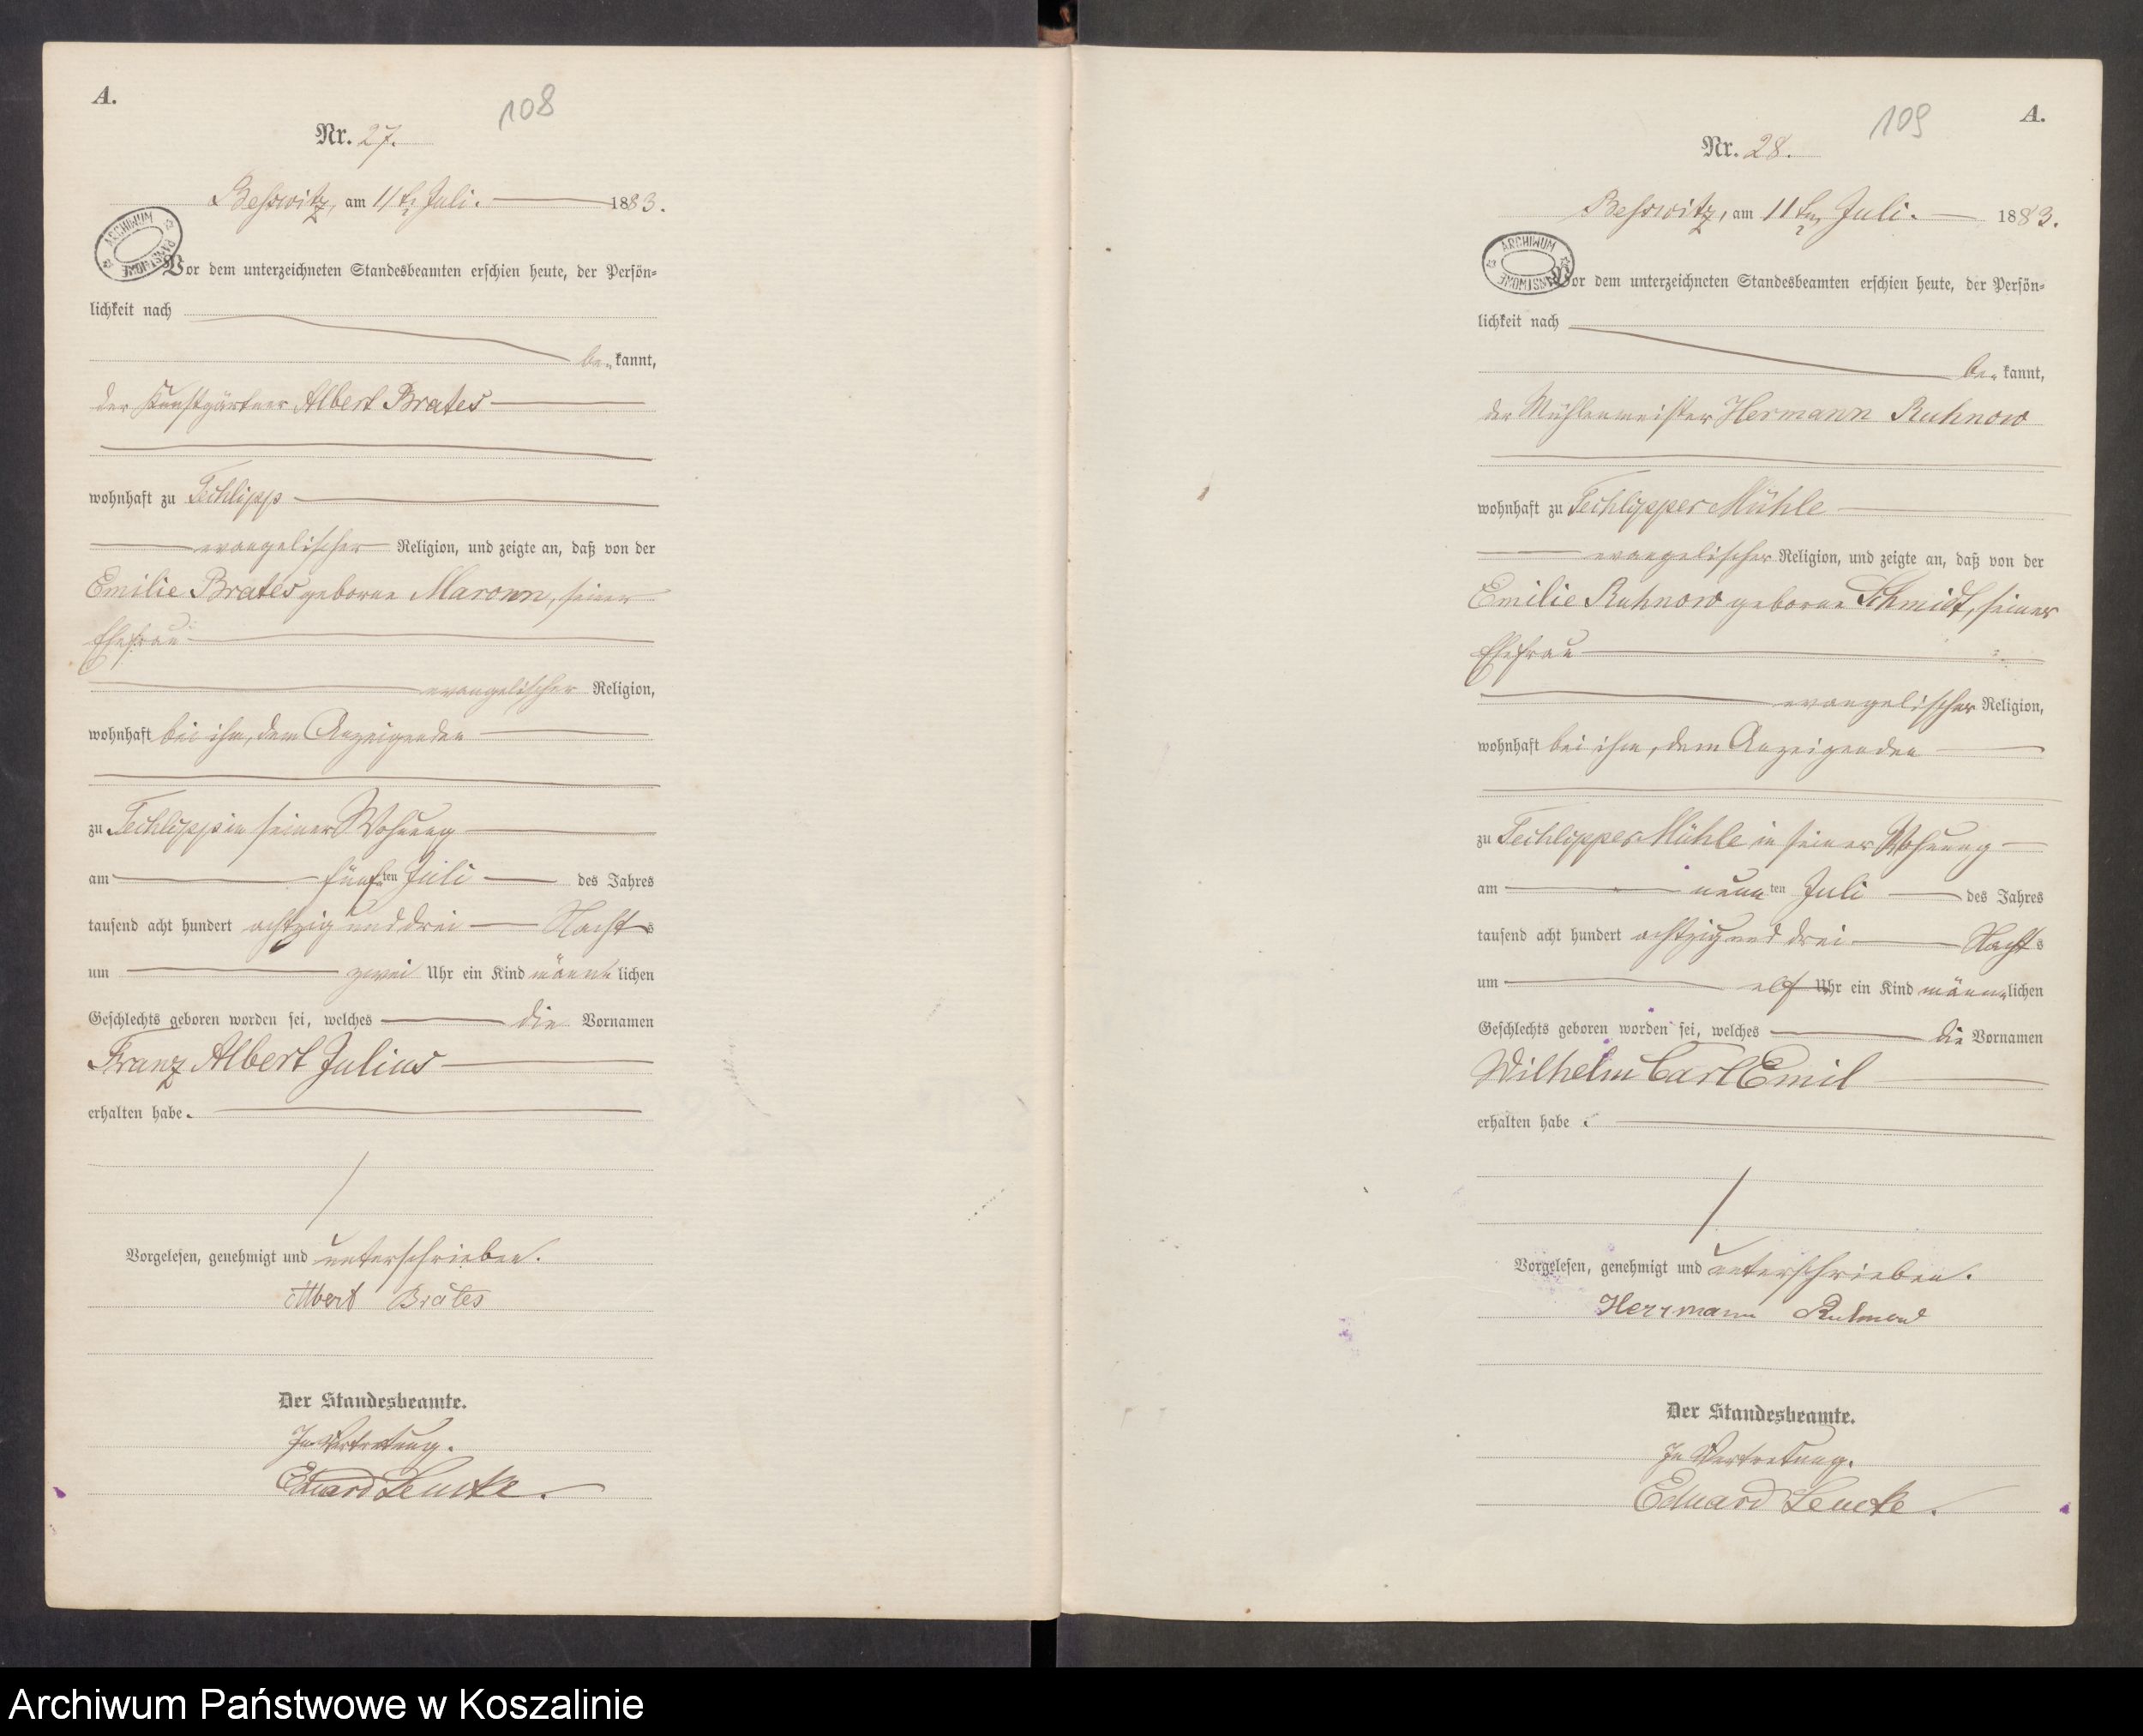 A.
108
Nr. 27.
Beßwitz, am 11ten Juli. 1883.
ARCHIWUM PAŃSTWOWE
Vor dem unterzeichneten Standesbeamten erschien heute, der Persön-
lichkeit nach
be- kannt,
der Kunstgärtner Albert Brates
wohnhaft zu Techlipp
evangelischer Religion, und zeigte an, daß von der
Emilie Brates geborne Maronn, seiner
Ehefrau
evangelischer Religion,
wohnhaft bei ihm, dem Anzeigenden
zu Techlipp in seiner Wohnung
am fünften Juli des Jahres
tausend acht hundert achtzig und drei Nachts
um zwei Uhr ein Kind männlichen
Geschlechts geboren worden sei, welches die Vornamen
Franz Albert Julius
erhalten habe.
Vorgelesen, genehmigt und unterschrieben.
Albert Brates
Der Standesbeamte.
In Vertretung.
Eduard Lemcke.
109
A.
Nr. 28.
Beßwitz, am 11ten Juli. 1883.
ARCHIWUM PAŃSTWOWE
Vor dem unterzeichneten Standesbeamten erschien heute, der Persön-
lichkeit nach
be- kannt,
der Mühlenmeister Hermann Ruhnow
wohnhaft zu Techlipper Mühle
evangelischer Religion, und zeigte an, daß von der
Emilie Ruhnow geborne Schmidt, seiner
Ehefrau
evangelischer Religion,
wohnhaft bei ihm, dem Anzeigenden
zu Techlipper Mühle in seiner Wohnung
am neunten Juli des Jahres
tausend acht hundert achtzig und drei Nachts
um elf Uhr ein Kind männlichen
Geschlechts geboren worden sei, welches die Vornamen
Wilhelm Carl Emil
erhalten habe.
Vorgelesen, genehmigt und unterschrieben.
Herrmann
Der Standesbeamte.
In Vertretung.
Eduard Lemcke.
Archiwum Państwowe w Koszalinie